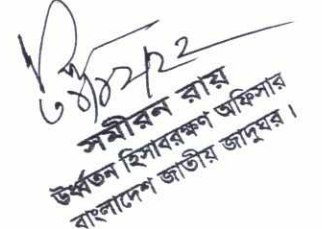 সমীরন রায়
উর্ধ্বতন হিসাবরক্ষণ অফিসার
বাংলাদেশ জাতীয় জাদুঘর।